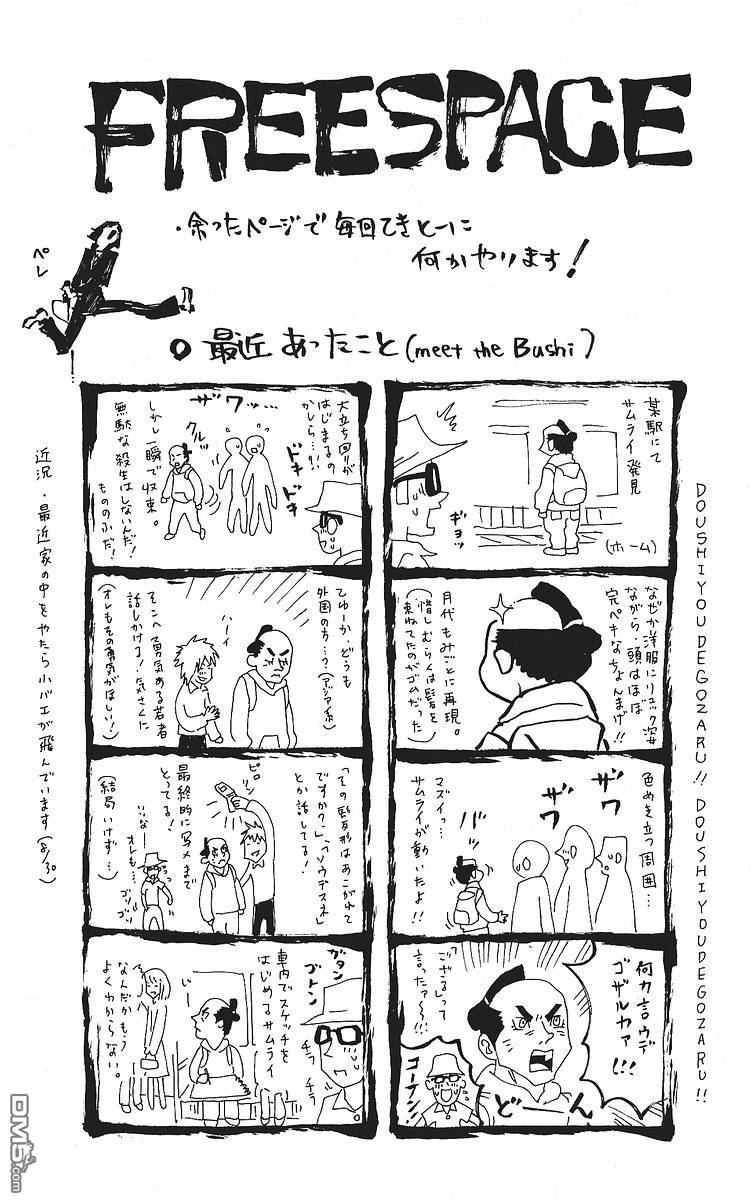 FREESPACE
・余ったページで毎回てきとーに
何かやります!
ペレ
○最近あったこと(meet the Bushi)
某駅にて
サムライ発見
ギョッ
(ホーム)
なぜか洋服にリュック姿
ながら・頭はほぼ
完ペキなちょんまげ!!
月代もみごとに再現。
(惜しむらくは髪を
束ねてたのがゴムだった)
色めき立つ周囲…
ザワ
ザワ
バッ
マズイっ…
サムライが動いたよ!!
何カ言ウデ
ゴザルカァ!!
「ござる」って
言ったァ〜!!!
コーフン!
どーん
ザワッ…
大立ち回りが
はじまるの
かしら…?!
ドキ
ドキ
クルッ
しかし一瞬で収束。
無駄な殺生はしないんだ!
もののふだ!
てゆーか、どうも
外国の方…?(アジア系)
ハーイ
そこへ勇気ある若者
話しかける!気さくに
(オレもその勇気がほしい!)
「その髪形はあこがれて
ですか?」、「ソウデスネ」
とか話してる!
ピロリン
最終的に写メまで
とってる!
いいなー
オレも…
ゴソゴソ
(結局いけず…)
ガタン
ゴトン
車内でスケッチを
はじめるサムライ
じー
チラ
チラ
なんだかもう
よくわからない。
DOUSHIYOUDEGOZARU!! DOUSHIYOUDEGOZARU!!
近況・最近家の中をやたら小バエが飛んでいます(8/30)
DM5.com